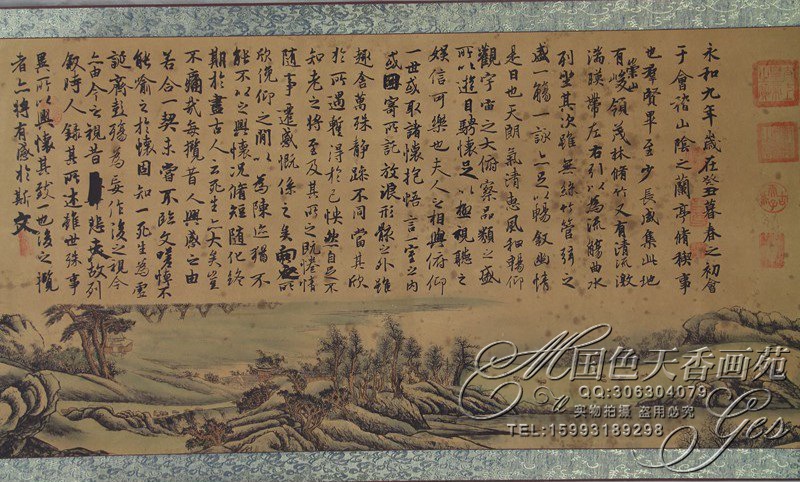 永和九年歲在癸丑暮春之初會
于會稽山陰之蘭亭脩稧事
也羣賢畢至少長咸集此地
有崇山峻領茂林脩竹又有清流激
湍暎帶左右引以為流觴曲水
列坐其次雖無絲竹管弦之
盛一觴一詠亦足以暢敘幽情
是日也天朗氣清惠風和暢仰
觀宇宙之大俯察品類之盛
所以遊目騁懷足以極視聽之
娛信可樂也夫人之相與俯仰
一世或取諸懷抱悟言一室之內
或因寄所託放浪形骸之外雖
趣舍萬殊靜躁不同當其欣
於所遇暫得於己怏然自足不
知老之將至及其所之既惓情
隨事遷感慨係之矣向之所
欣俛仰之閒以為陳迹猶不
能不以之興懷況脩短隨化終
期於盡古人云死生亦大矣豈
不痛哉每攬昔人興感之由
若合一契未嘗不臨文嗟悼不
能喻之於懷固知一死生為虛
誕齊彭殤為妄作後之視今
亦由今之視昔悲夫故列
敘時人錄其所述雖世殊事
異所以興懷其致一也後之攬
者亦將有感於斯文
国色天香画苑
QQ:306304079
实物拍摄 盗用必究
TEL:15993189298